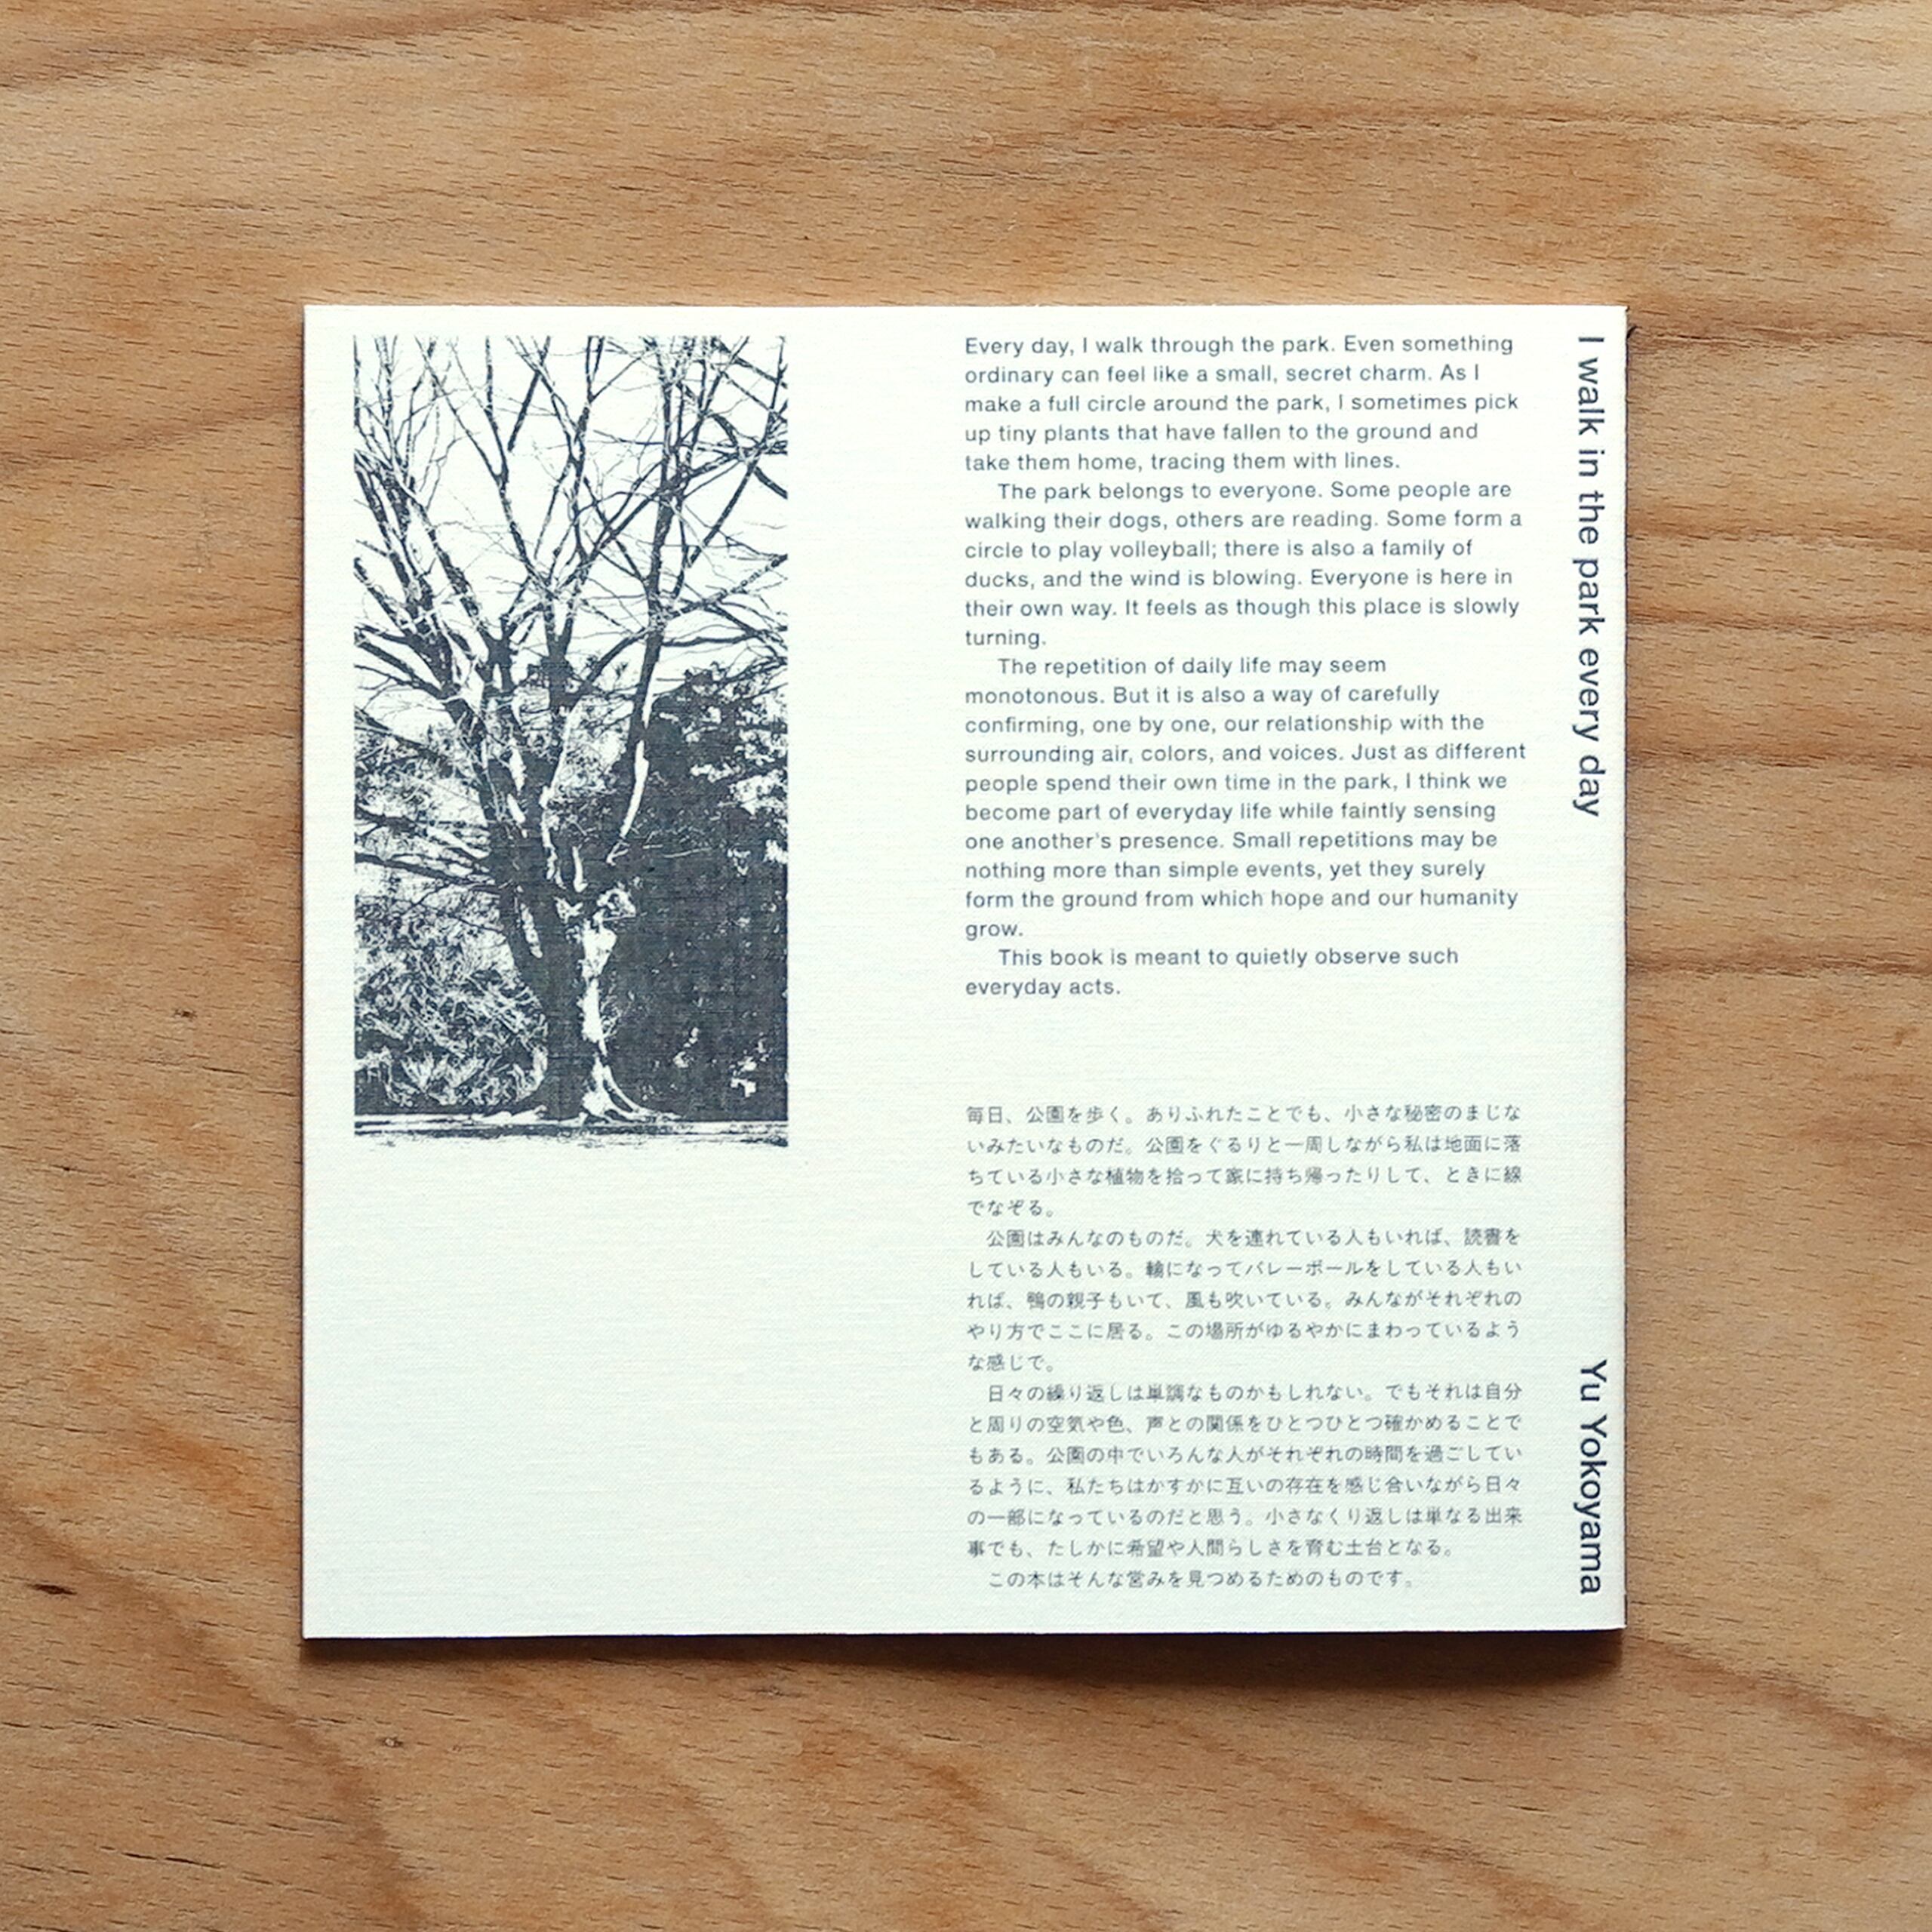 Every day, I walk through the park. Even something
ordinary can feel like a small, secret charm. As I
make a full circle around the park, I sometimes pick
up tiny plants that have fallen to the ground and
take them home, tracing them with lines.
The park belongs to everyone. Some people are
walking their dogs, others are reading. Some form a
circle to play volleyball; there is also a family of
ducks, and the wind is blowing. Everyone is here in
their own way. It feels as though this place is slowly
turning.
The repetition of daily life may seem
monotonous. But it is also a way of carefully
confirming, one by one, our relationship with the
surrounding air, colors, and voices. Just as different
people spend their own time in the park, I think we
become part of everyday life while faintly sensing
one another's presence. Small repetitions may be
nothing more than simple events, yet they surely
form the ground from which hope and our humanity
grow.
This book is meant to quietly observe such
everyday acts.
毎日、公園を歩く。ありふれたことでも、小さな秘密のまじな
いみたいなものだ。公園をぐるりと一周しながら私は地面に落
ちている小さな植物を拾って家に持ち帰ったりして、ときに線
でなぞる。
公園はみんなのものだ。犬を連れている人もいれば、読書を
している人もいる。輪になってバレーボールをしている人もい
れば、鴨の親子もいて、風も吹いている。みんながそれぞれの
やり方でここに居る。この場所がゆるやかにまわっているよう
な感じで。
日々の繰り返しは単調なものかもしれない。でもそれは自分
と周りの空気や色、声との関係をひとつひとつ確かめることで
もある。公園の中でいろんな人がそれぞれの時間を過ごしてい
るように、私たちはかすかに互いの存在を感じ合いながら日々
の一部になっているのだと思う。小さなくり返しは単なる出来
事でも、たしかに希望や人間らしさを育む土台となる。
この本はそんな営みを見つめるためのものです。
I walk in the park every day
Yu Yokoyama